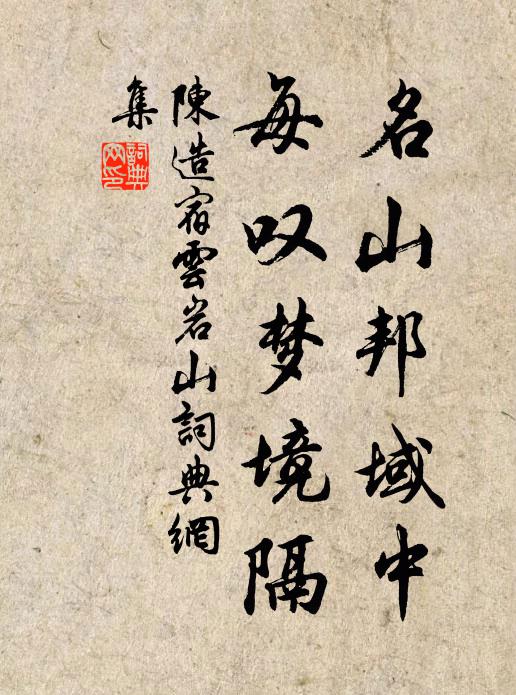 名山邦域中
每叹梦境隔
陳造宿雲岩山詞典網
集
詞典网印